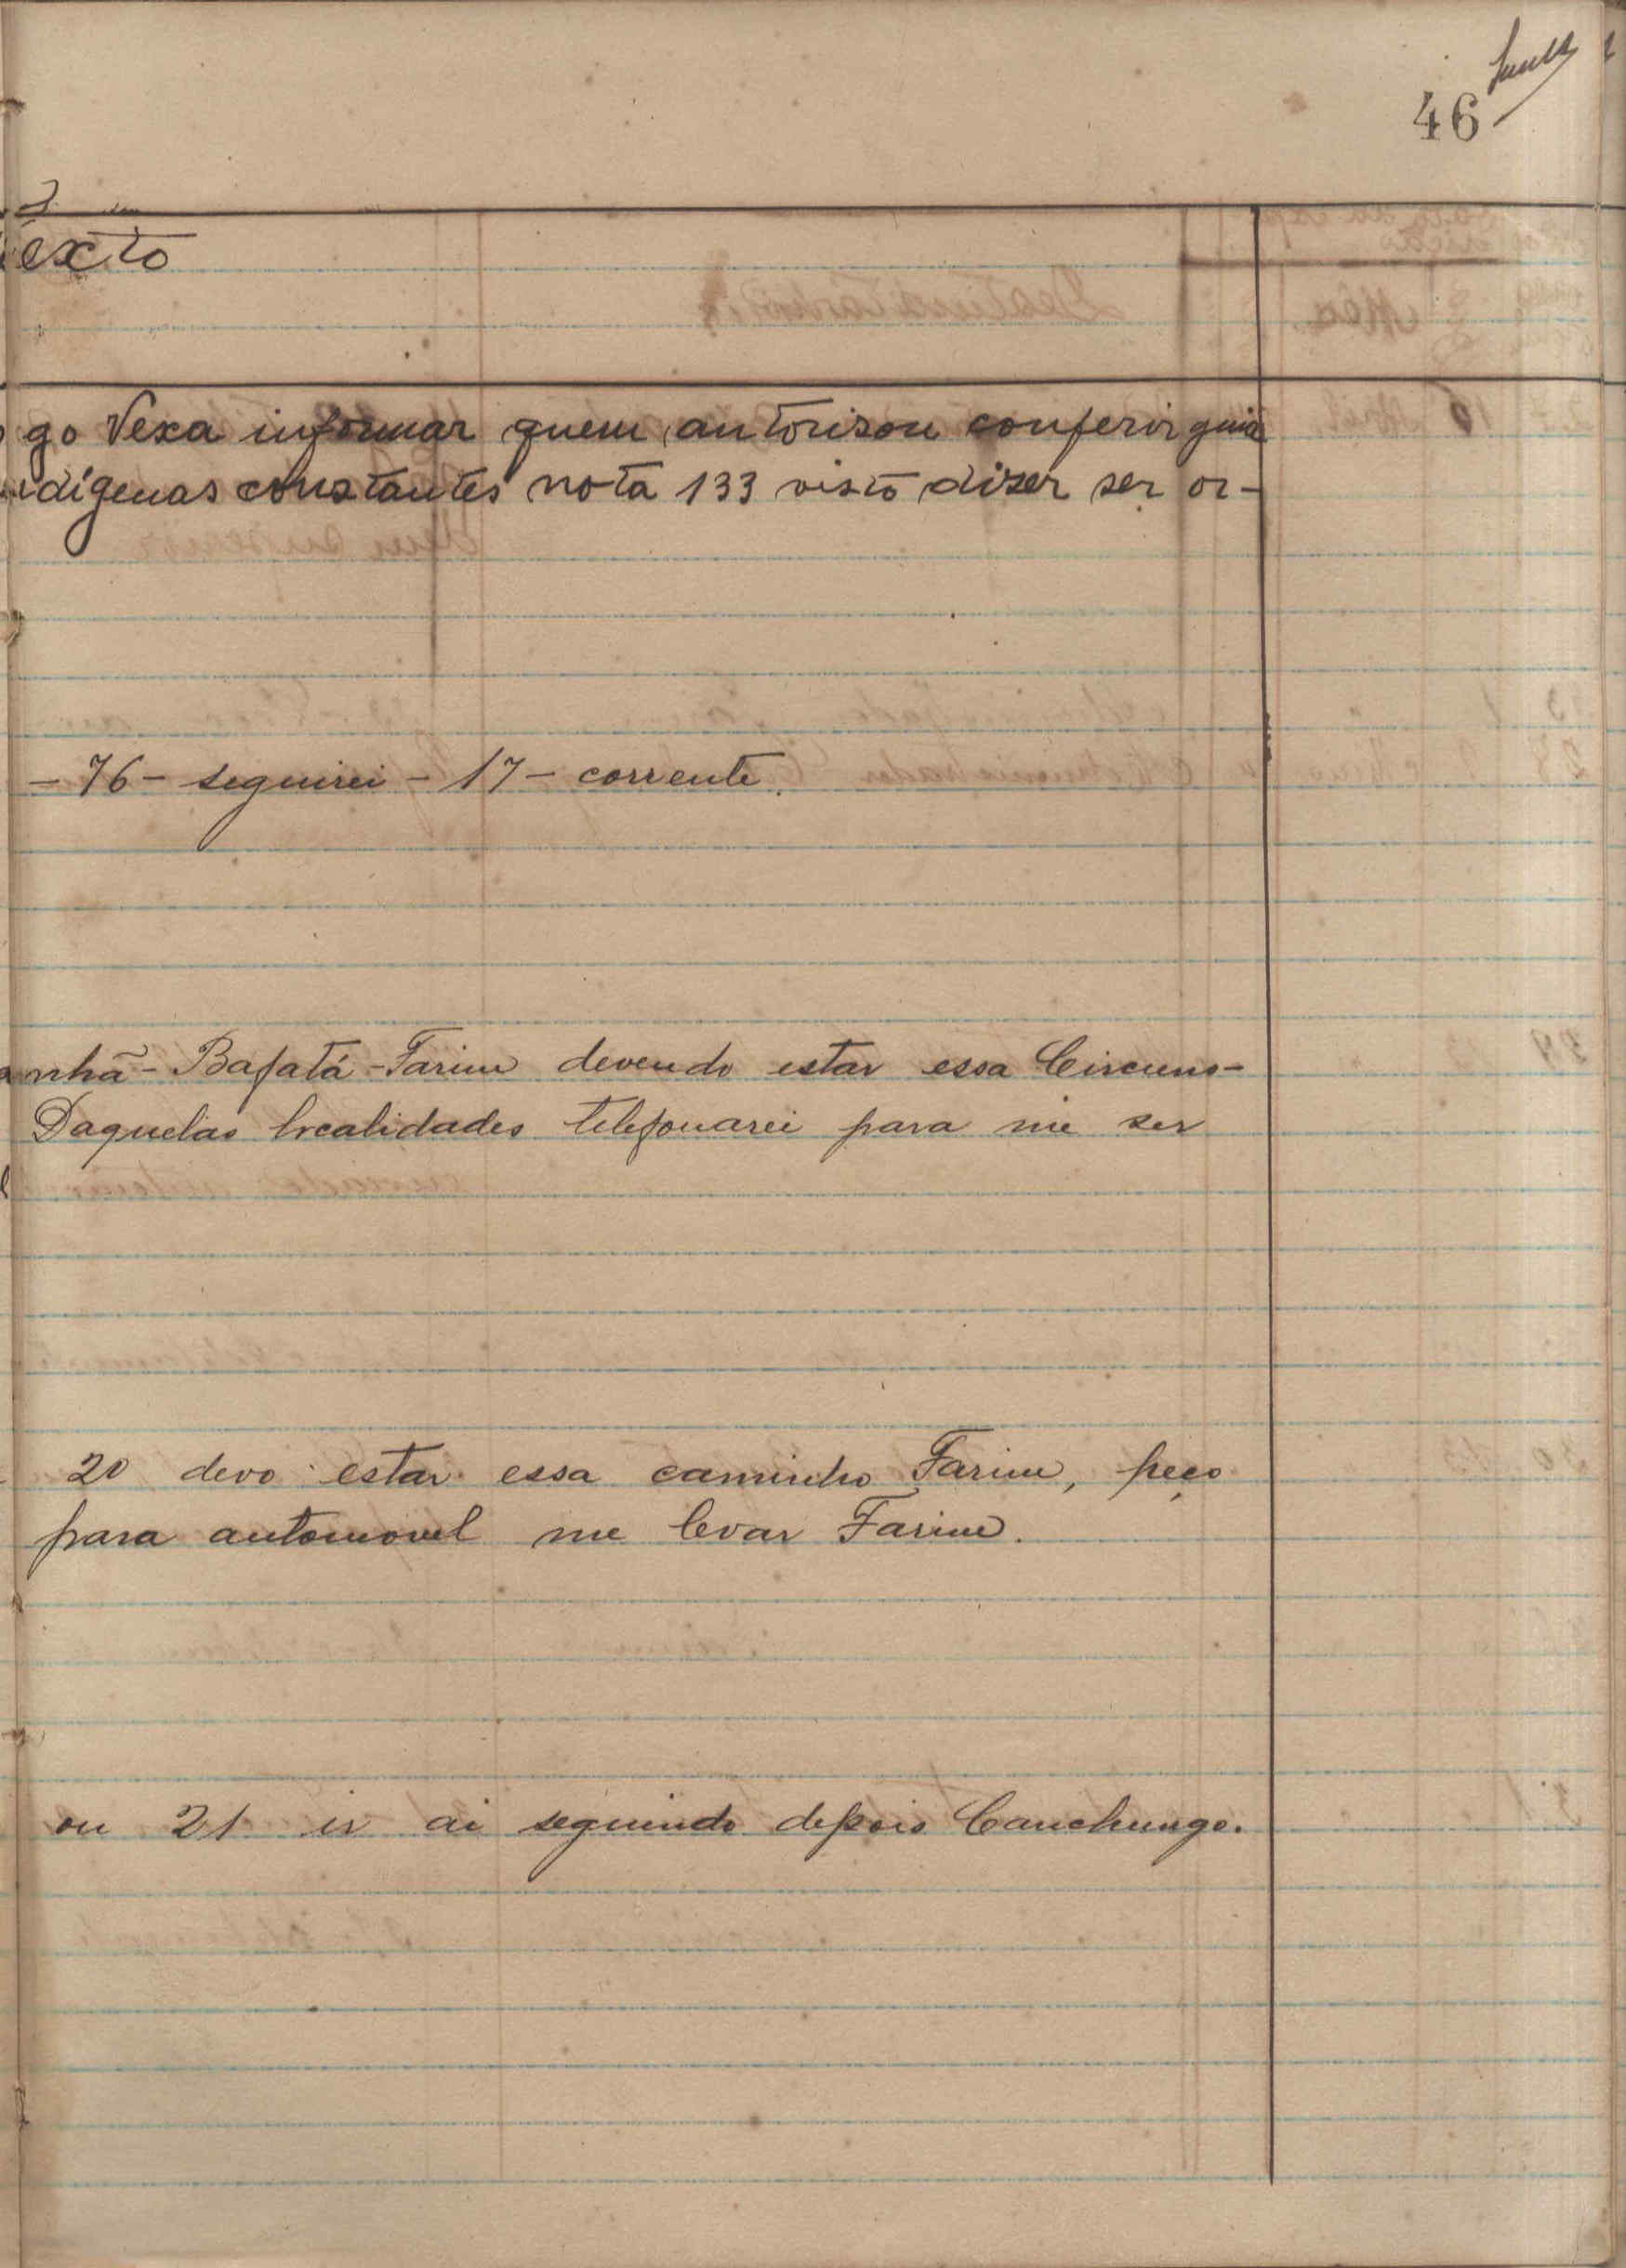 46
exto
go Vexa informar quem autorisou conferir guia
digenas constantes nota 133 visto dizer ser or-
- 76 - seguirei - 17 - corrente.
nhã - Bafatá - Farim devendo estar essa Circuns-
Daquelas localidades telefonarei para me ser
20 devo estar essa caminho Farim, peço
para automovel me levar Farim.
ou 21 ir ai seguindo depois Canchungo.